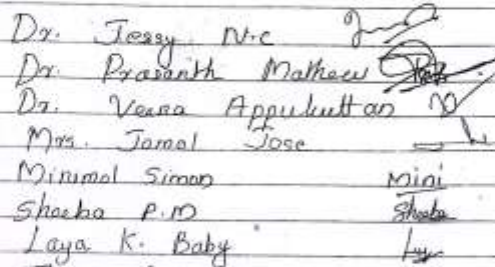 Dr. Jessy N.C
Dr. Prasanth Mathew
Dr. Veena Appukuttan
Mrs. Jomol Jose
Minimol Simon Mini
Sheeba P.M Sheeba
Laya K. Baby